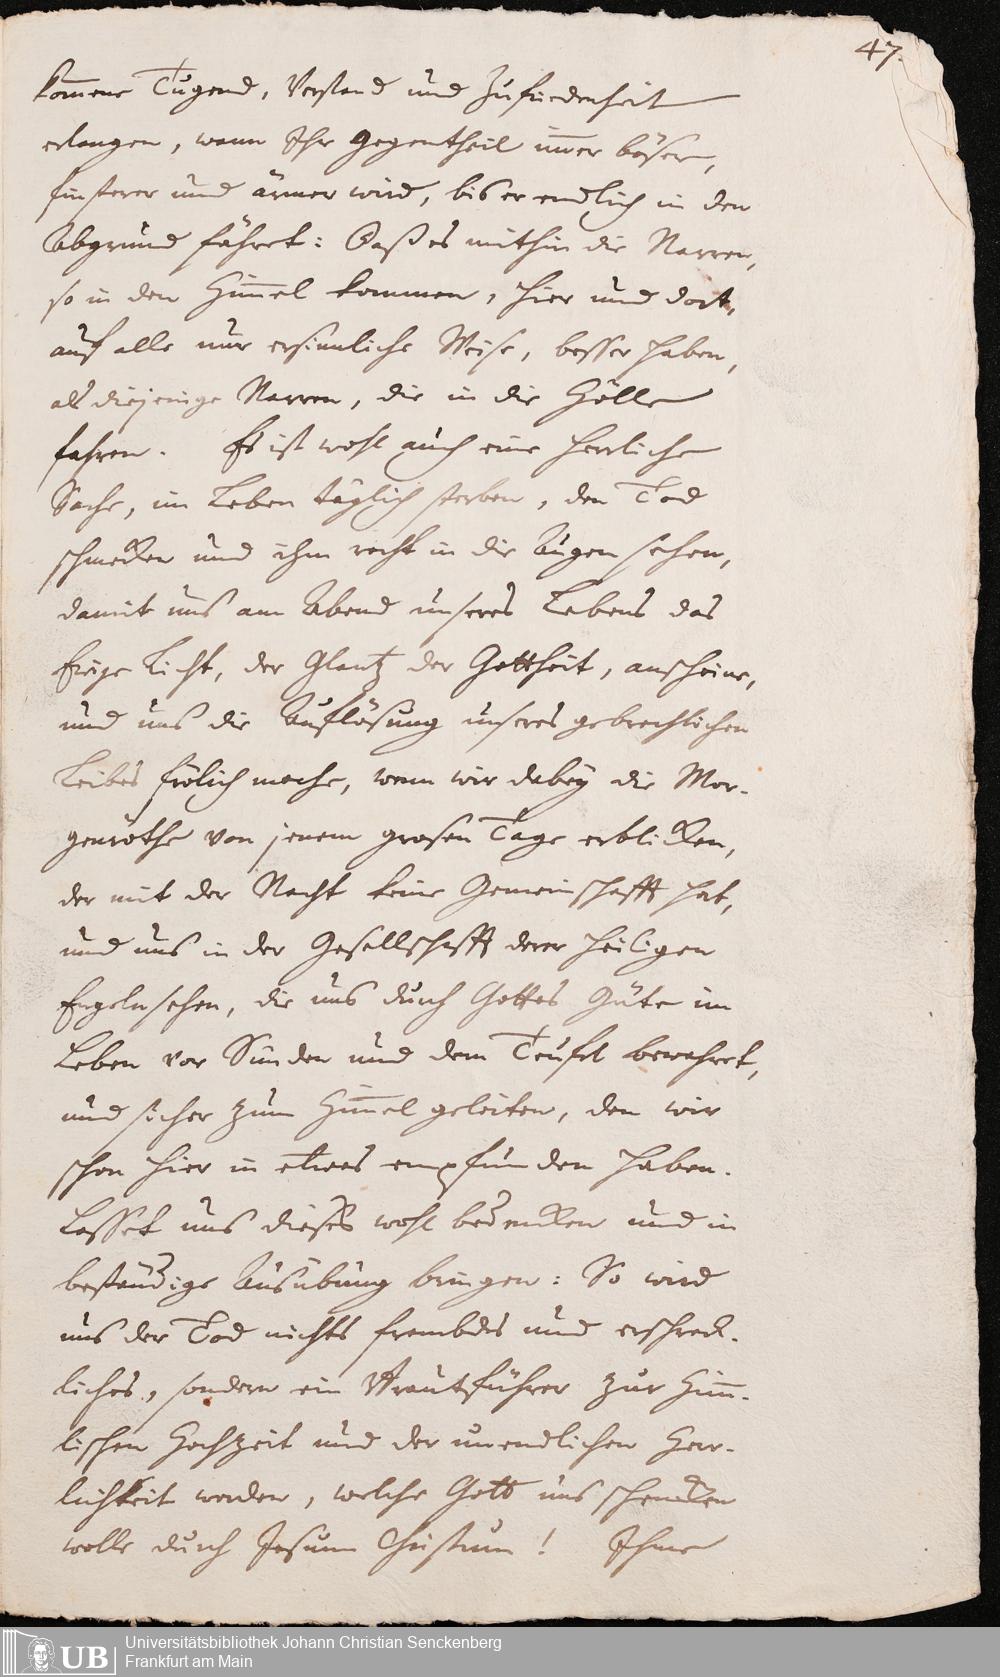 47.
kom̅ene Tugend, Verstand und Zufriedenheit
erlangen, wann Ihr Gegentheil im̅er böser,
finsterer und ärmer wird, bis er endlich in den
Abgrund fähret: Daß es mithin die Narren,
so in den Him̅el kommen, hier und dort,
auf alle nur ersinnliche Weise, besser haben,
als diejenige Narren, die in die Hölle
fahren. Es ist wohl auch eine herrliche
Sache, im Leben täglich sterben, den Tod
schmecken und ihm recht in die Augen sehen,
damit uns am Abend unseres Lebens das
Ewige Licht, der Glantz der Gottheit, anscheine,
und uns die Auflösung unseres gebrechlichen
Leibes frölich mache, wenn wir dabey die Mor-
genröthe von jenem grosen Tage erblicken,
der mit der Nacht keine Gemeinschafft hat,
und uns in der Gesellschafft derer heiligen
Engeln sehen, die uns durch Gottes Güte im
Leben vor Sünden und dem Teufel bewahret,
und sicher zum Him̅el geleiten, den wir
schon hier in etwas empfunden haben.
Lasset uns dieses wohl bedencken und in
beständige Ausübung bringen: So wird
uns der Tod nichts frembdes und erschreck-
liches, sondern ein Brautführer zur Him̅-
lischen Hochzeit und der unendlichen Herr-
lichkeit werden, welche Gott uns schencken
wolle durch Jesum Christum! Ihme
Universitätsbibliothek Johann Christian Senckenberg
Frankfurt am Main
UB